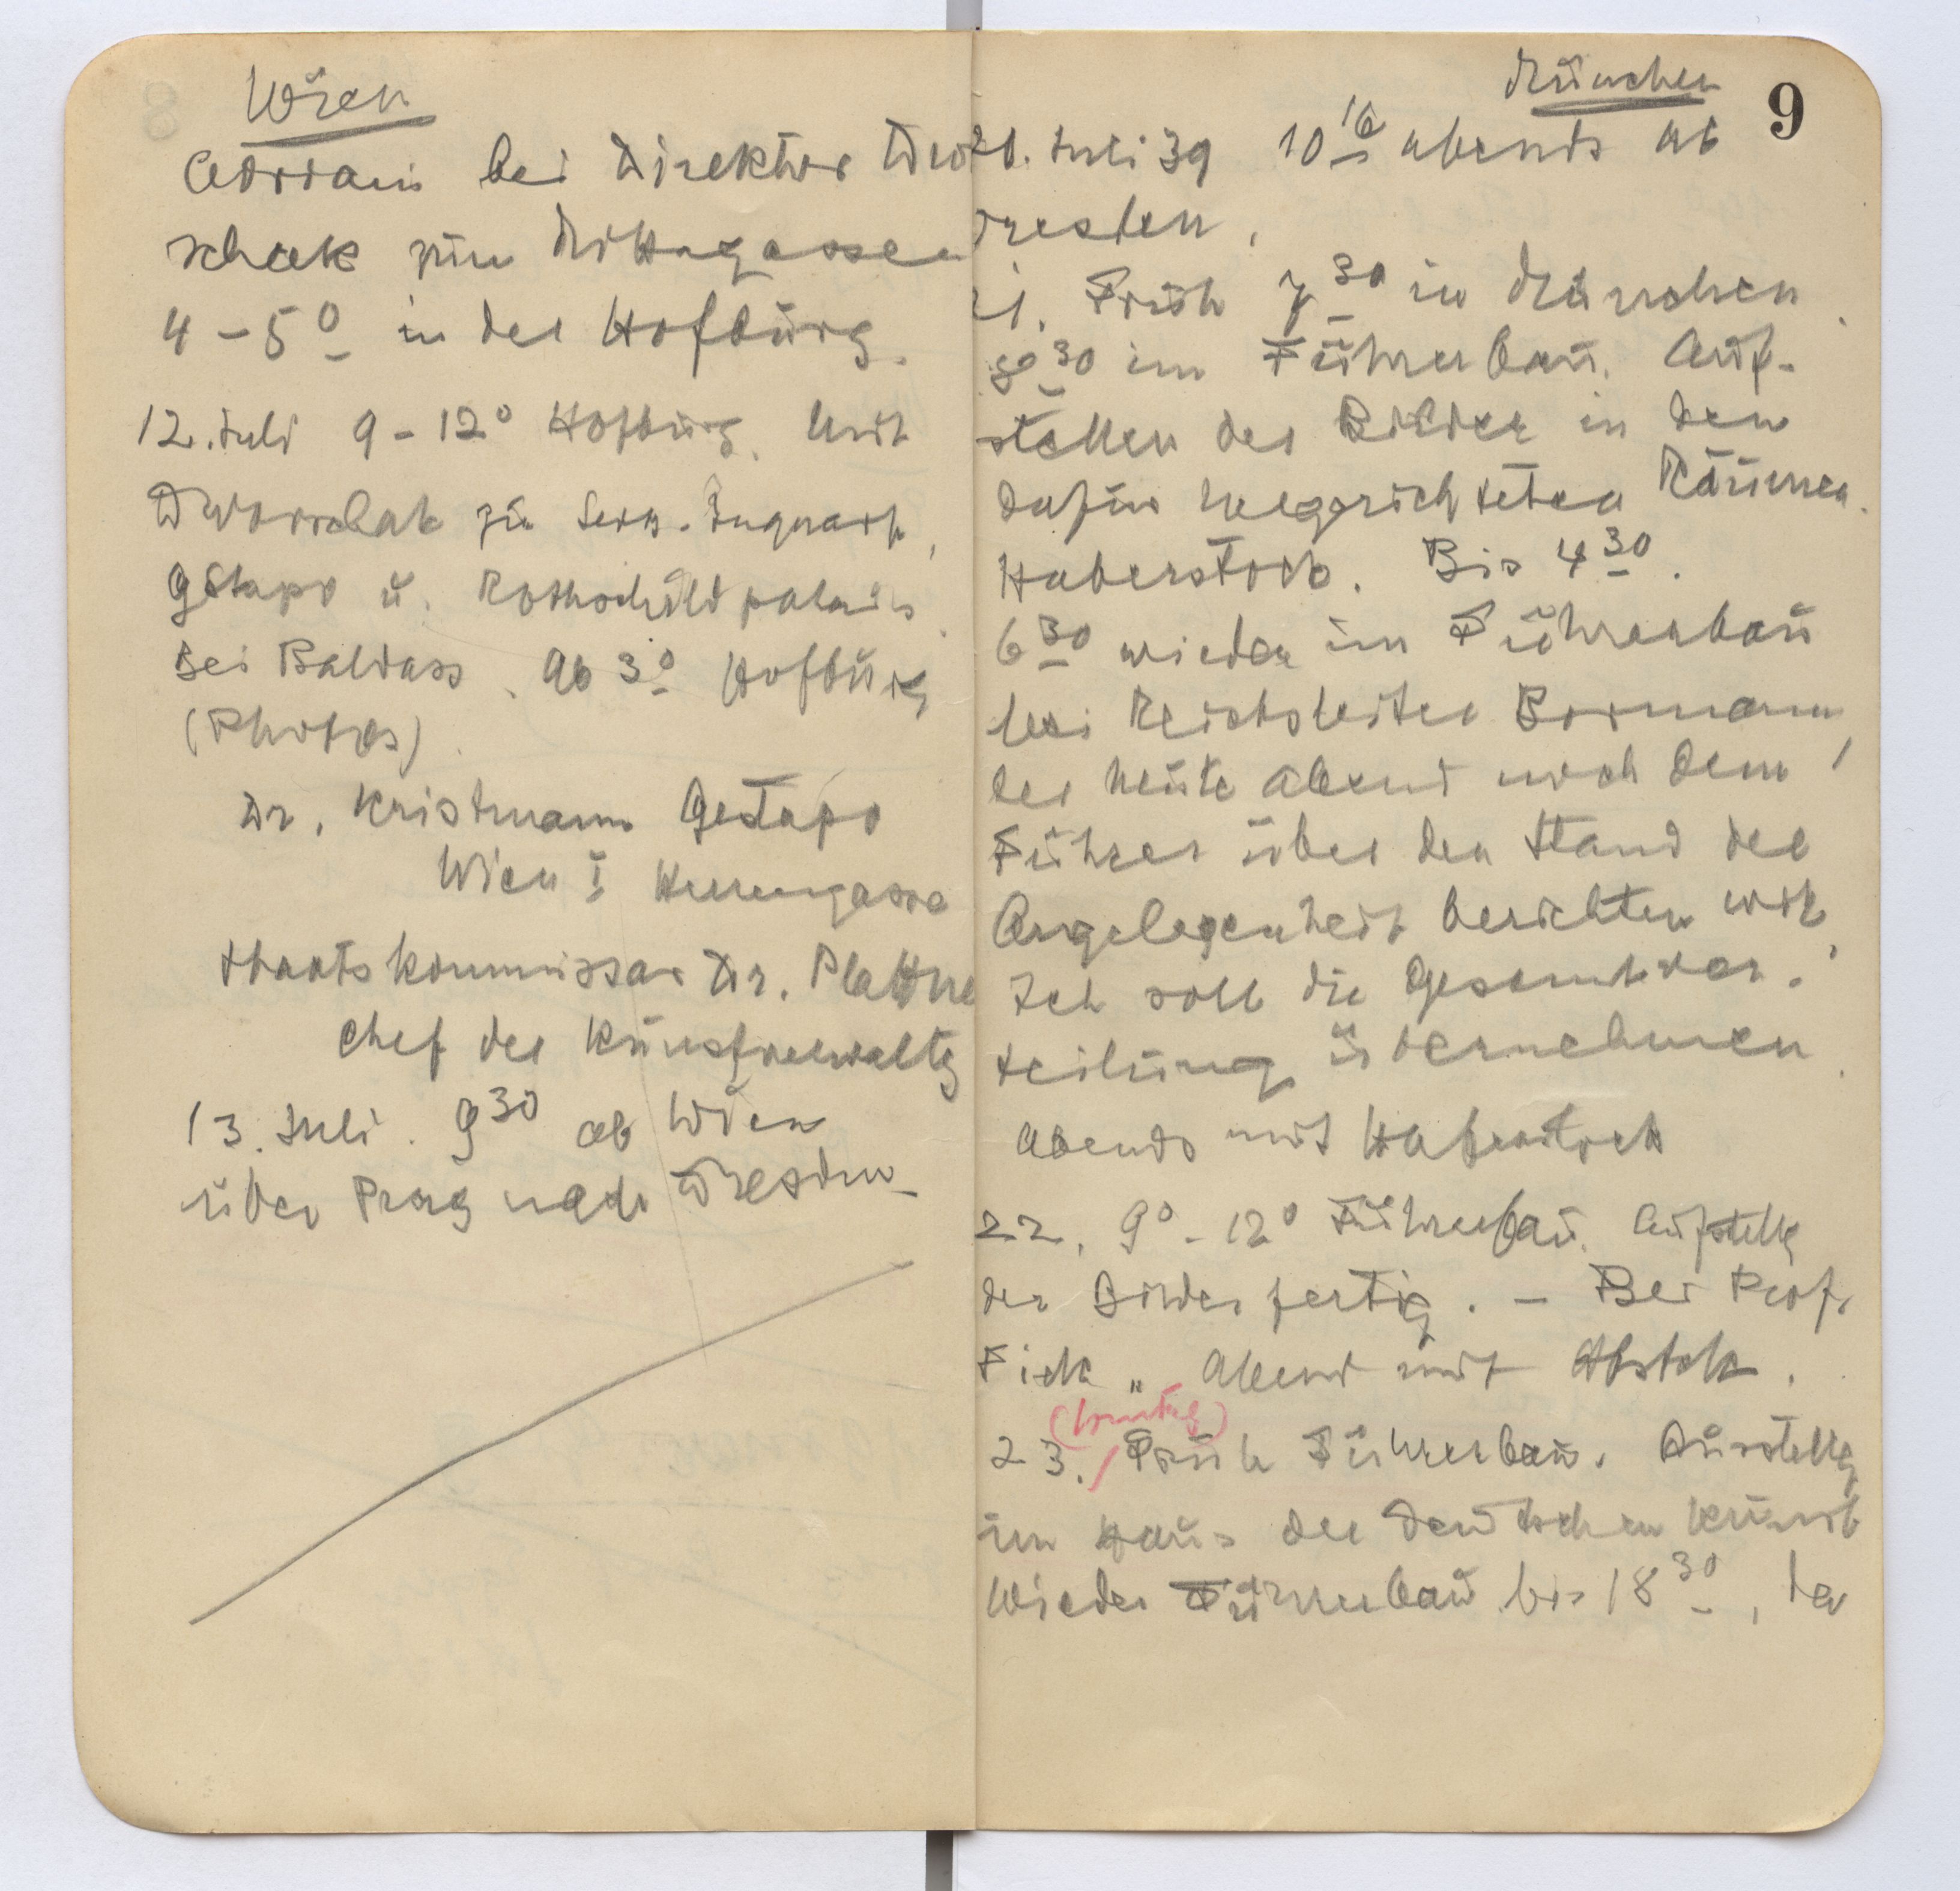 Wien
Adriani bei Direktor Dwor
schak zum Mittagessen
4 – 5⁰ in der Hofburg.
12. Juli 9 – 12⁰ Hofburg. Mit
Dworschak zu Seys-Inquart,
Gestapo u. Rothschildpalais.
Bei Baldass. Ab 3⁰ Hofburg
(Photos).
Dr. Kristmann Gestapo
Wien I Herrengasse
Staatskommissar Dr. Plattner
Chef der Kunstverwaltg
13. Juli. 9³⁰ ab Wien
über Prag nach Dresden
München
9
20. Juli 39 10¹⁶ abends ab
Dresden.
21. Früh 7³⁰ in München.
8³⁰ im Führerbau. Auf-
stellen der Bilder in den
dafür hergerichteten Räumen.
Haberstock. Bis 4³⁰.
6³⁰ wieder im Führerbau
bei Reichsleiter Bormann,
der heute Abend noch dem
Führer über den Stand der
Angelegenheit berichten will.
Ich soll die Gesamtver-
teilung übernehmen.
Abends mit Haberstock
22. 9⁰ – 12⁰ Führerbau. Aufstellg
der Bilder fertig. – Bei Prof.
Fick „ Abend mit Hbstck.
(Sonntag)
23. / Früh Führerbau. Ausstellg
im Haus der Deutschen Kunst
Wieder Führerbau bis 18³⁰, der